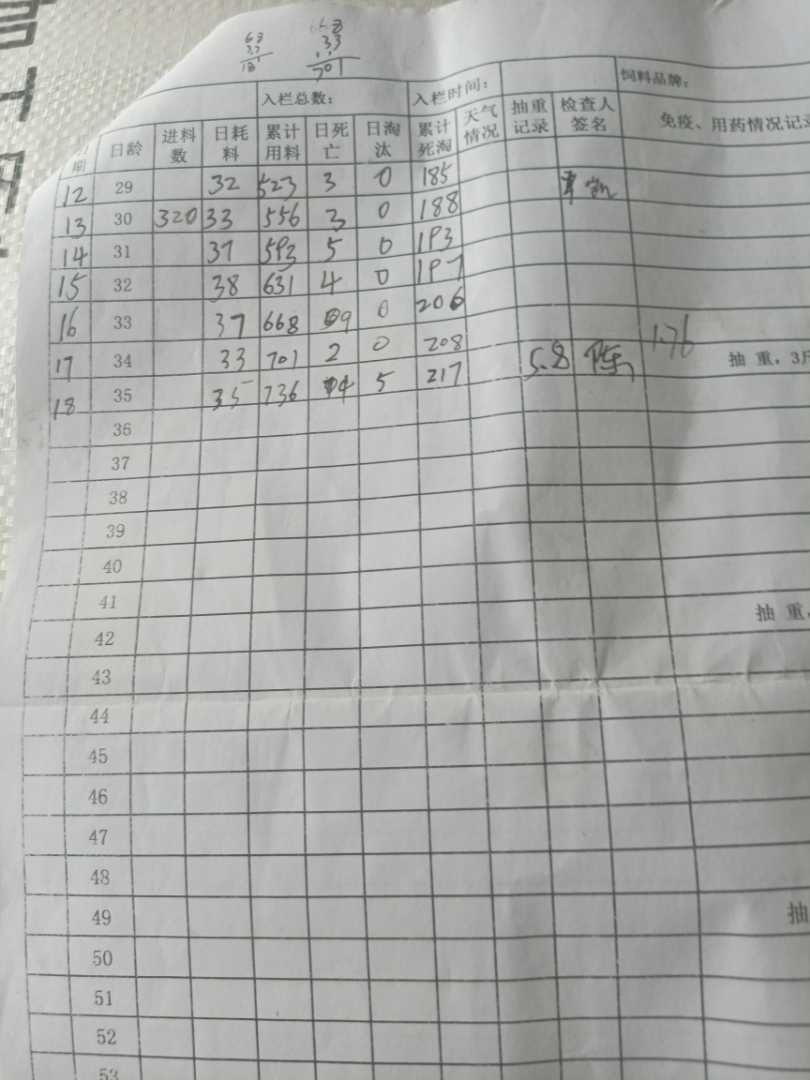 668
33
701
入栏总数： 入栏时间： 饲料品牌：
期 日龄 进料数 日耗料 累计用料 日死亡 日淘汰 累计死淘 天气情况 抽重记录 检查人签名 免疫、用药情况记录
12 29 32 523 3 0 185
13 30 320 33 556 3 0 188
14 31 37 593 5 0 193
15 32 38 631 4 0 197
16 33 37 668 9 0 206
17 34 33 701 2 0 208 5.8 陈 1.76 抽 重，3斤
18 35 35 736 4 5 217
36
37
38
39
40
41
42 抽 重，
43
44
45
46
47
48
49
50 抽
51
52
53